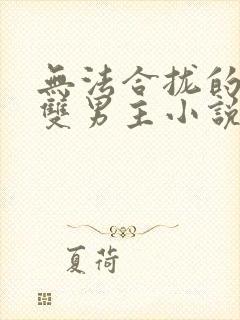 無法合拢的
雙男主小說
夏荷